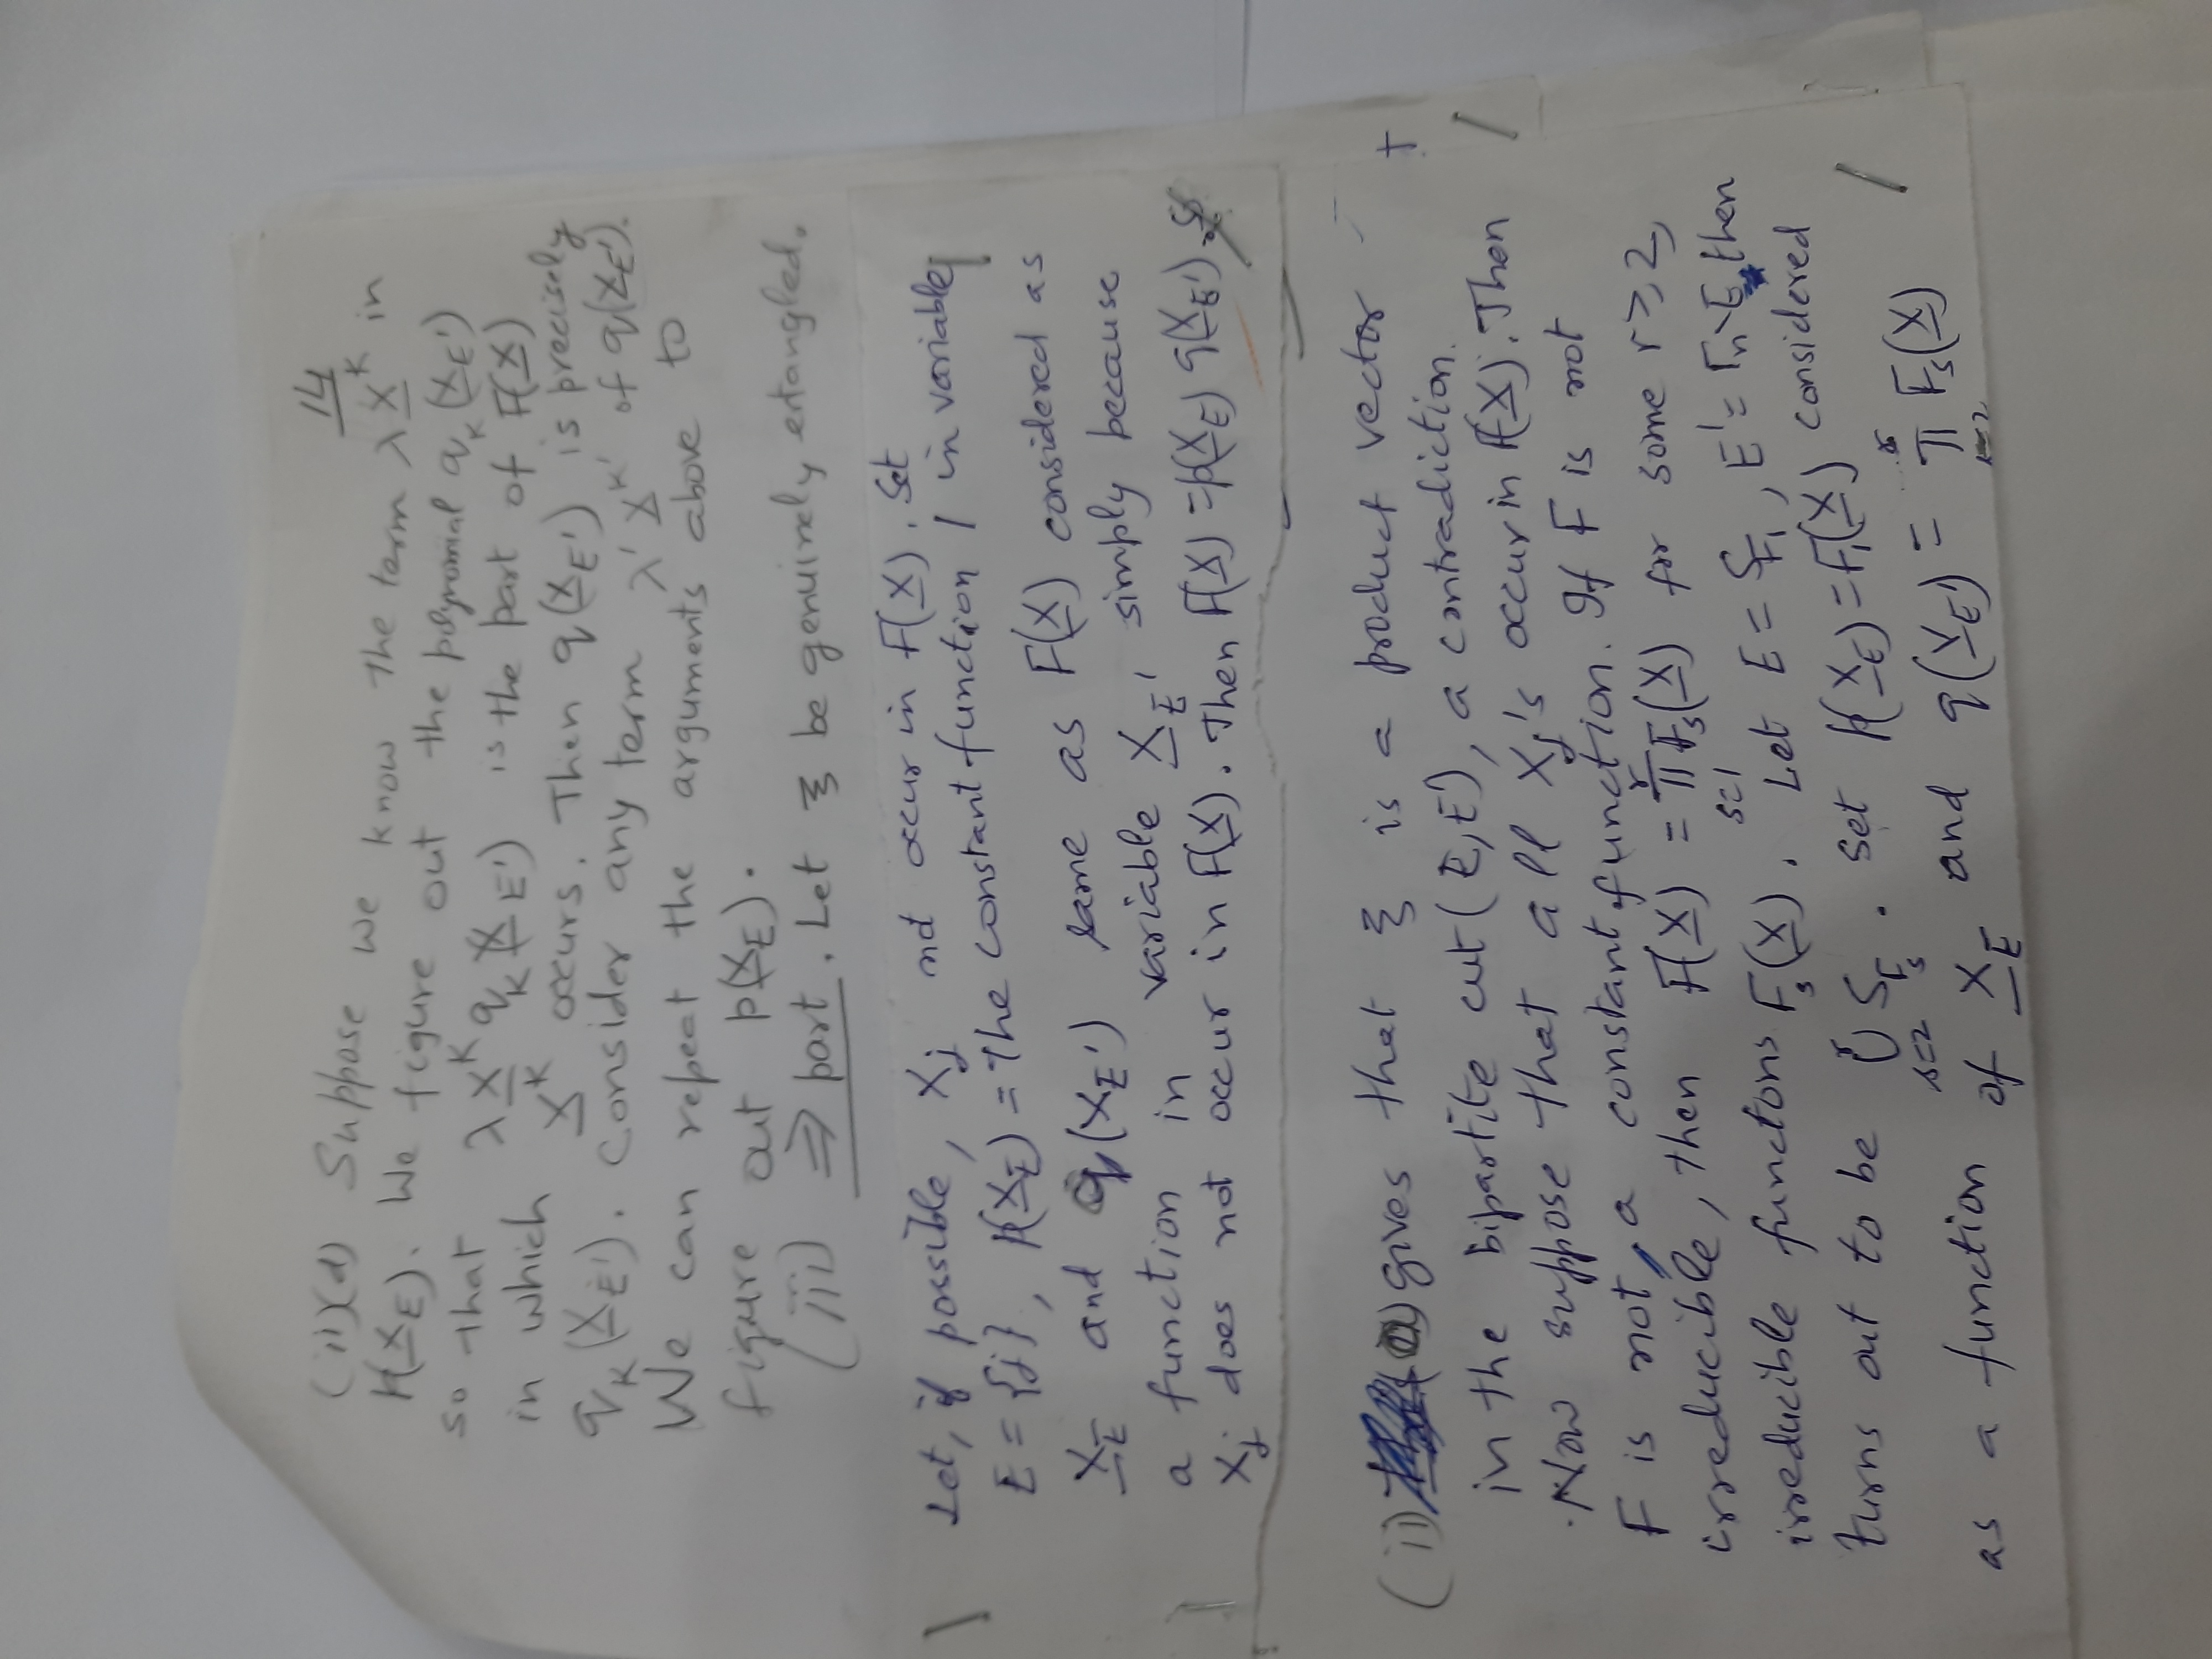 14
(ii)(d) Suppose we know the term λ X^K in
p(X_E). We figure out the polynomial q_K(X_E')
so that λ X^K q_K(X_E') is the part of F(X)
in which X^K occurs. Then q(X_E') is precisely
q_K(X_E'). Consider any term λ' X^K' of q(X_E').
We can repeat the arguments above to
figure out p(X_E).
(iii) ⇒ part. Let ξ be genuinely entangled.
Let, if possible, X_j not occur in F(X). Set
E = {j}, p(X_E) = The constant function 1 in variable
X_E and q(X_E') same as F(X) considered as
a function in variable X_E' simply because
X_j does not occur in F(X). Then F(X) = p(X_E) q(X_E').
(ii) (a) gives that ξ is a product vector
in the bipartite cut (E, E'), a contradiction.
Now suppose that all X_j's occur in F(X). Then
F is not a constant function. If F is not
irreducible, then F(X) = π_{s=1}^{r} F_s(X) for some r ≥ 2,
irreducible functons F_s(X). Let E = S_{F_1}, E' = Γ_n \ E, then
turns out to be ∪_{s=2}^{r} S_{F_s}. Set p(X_E) = F_1(X) considered
as a function of X_E and q(X_E') = π_{s=2}^{r} F_s(X)